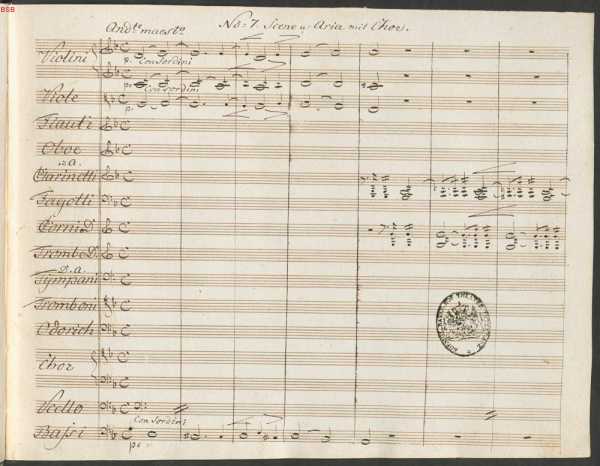 BSB
And.te maest.o No: 7 Scene u: Aria mit Chor.
Violini
p. Con Sordini
p. Con Sordini
Viole
p.
Flauti
Oboe
in A.
Clarinetti
Fagotti
Corni D.
Trombe D.
D. A.
Tympani
Tromboni
Odorich
Chor
Vcello
Con Sordini
Bassi
p.